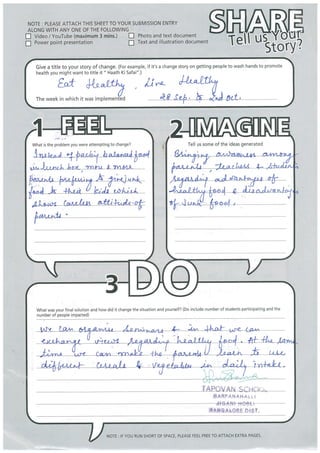 NOTE : PLEASE ATTACH THIS SHEET TO YOUR SUBMISSION ENTRY
ALONG WITH ANY ONE OF THE FOLLOWING
Video / YouTube (maximum 3 mins.)
Photo and text document
Power point presentation
Text and illustration document
SHARE
Tell us Your
Story?
Give a title to your story of change. (For example, if it's a change story on getting people to wash hands to promote
health you might want to title it " Haath Ki Safai".)
Eat Healthy, Live Healthy
The week in which it was implemented 28 Sep. to 2nd Oct.
1 FEEL
What is the problem you were attempting to change?
Instead of packing balanced food
in lunch box, more & more
parents prefering to give junk
food to their kids which
shows careless attitude of
parents.
2 IMAGINE
Tell us some of the ideas generated
Bringing awareness among
parents, teachers & students
regarding advantages of
healthy food & disadvantages
of Junk food.
3 DO
What was your final solution and how did it change the situation and yourself? (Do include number of students participating and the
number of people impacted)
We can organise Seminars & in that we can
exchange views regarding healthy food. At the same
time we can make the parents learn to use
different cereals & vegetables in daily intake.
TAPOVAN SCHOOL
JIGANI HOBLI
BANGALORE DIST.
NOTE : IF YOU RUN SHORT OF SPACE, PLEASE FEEL FREE TO ATTACH EXTRA PAGES.